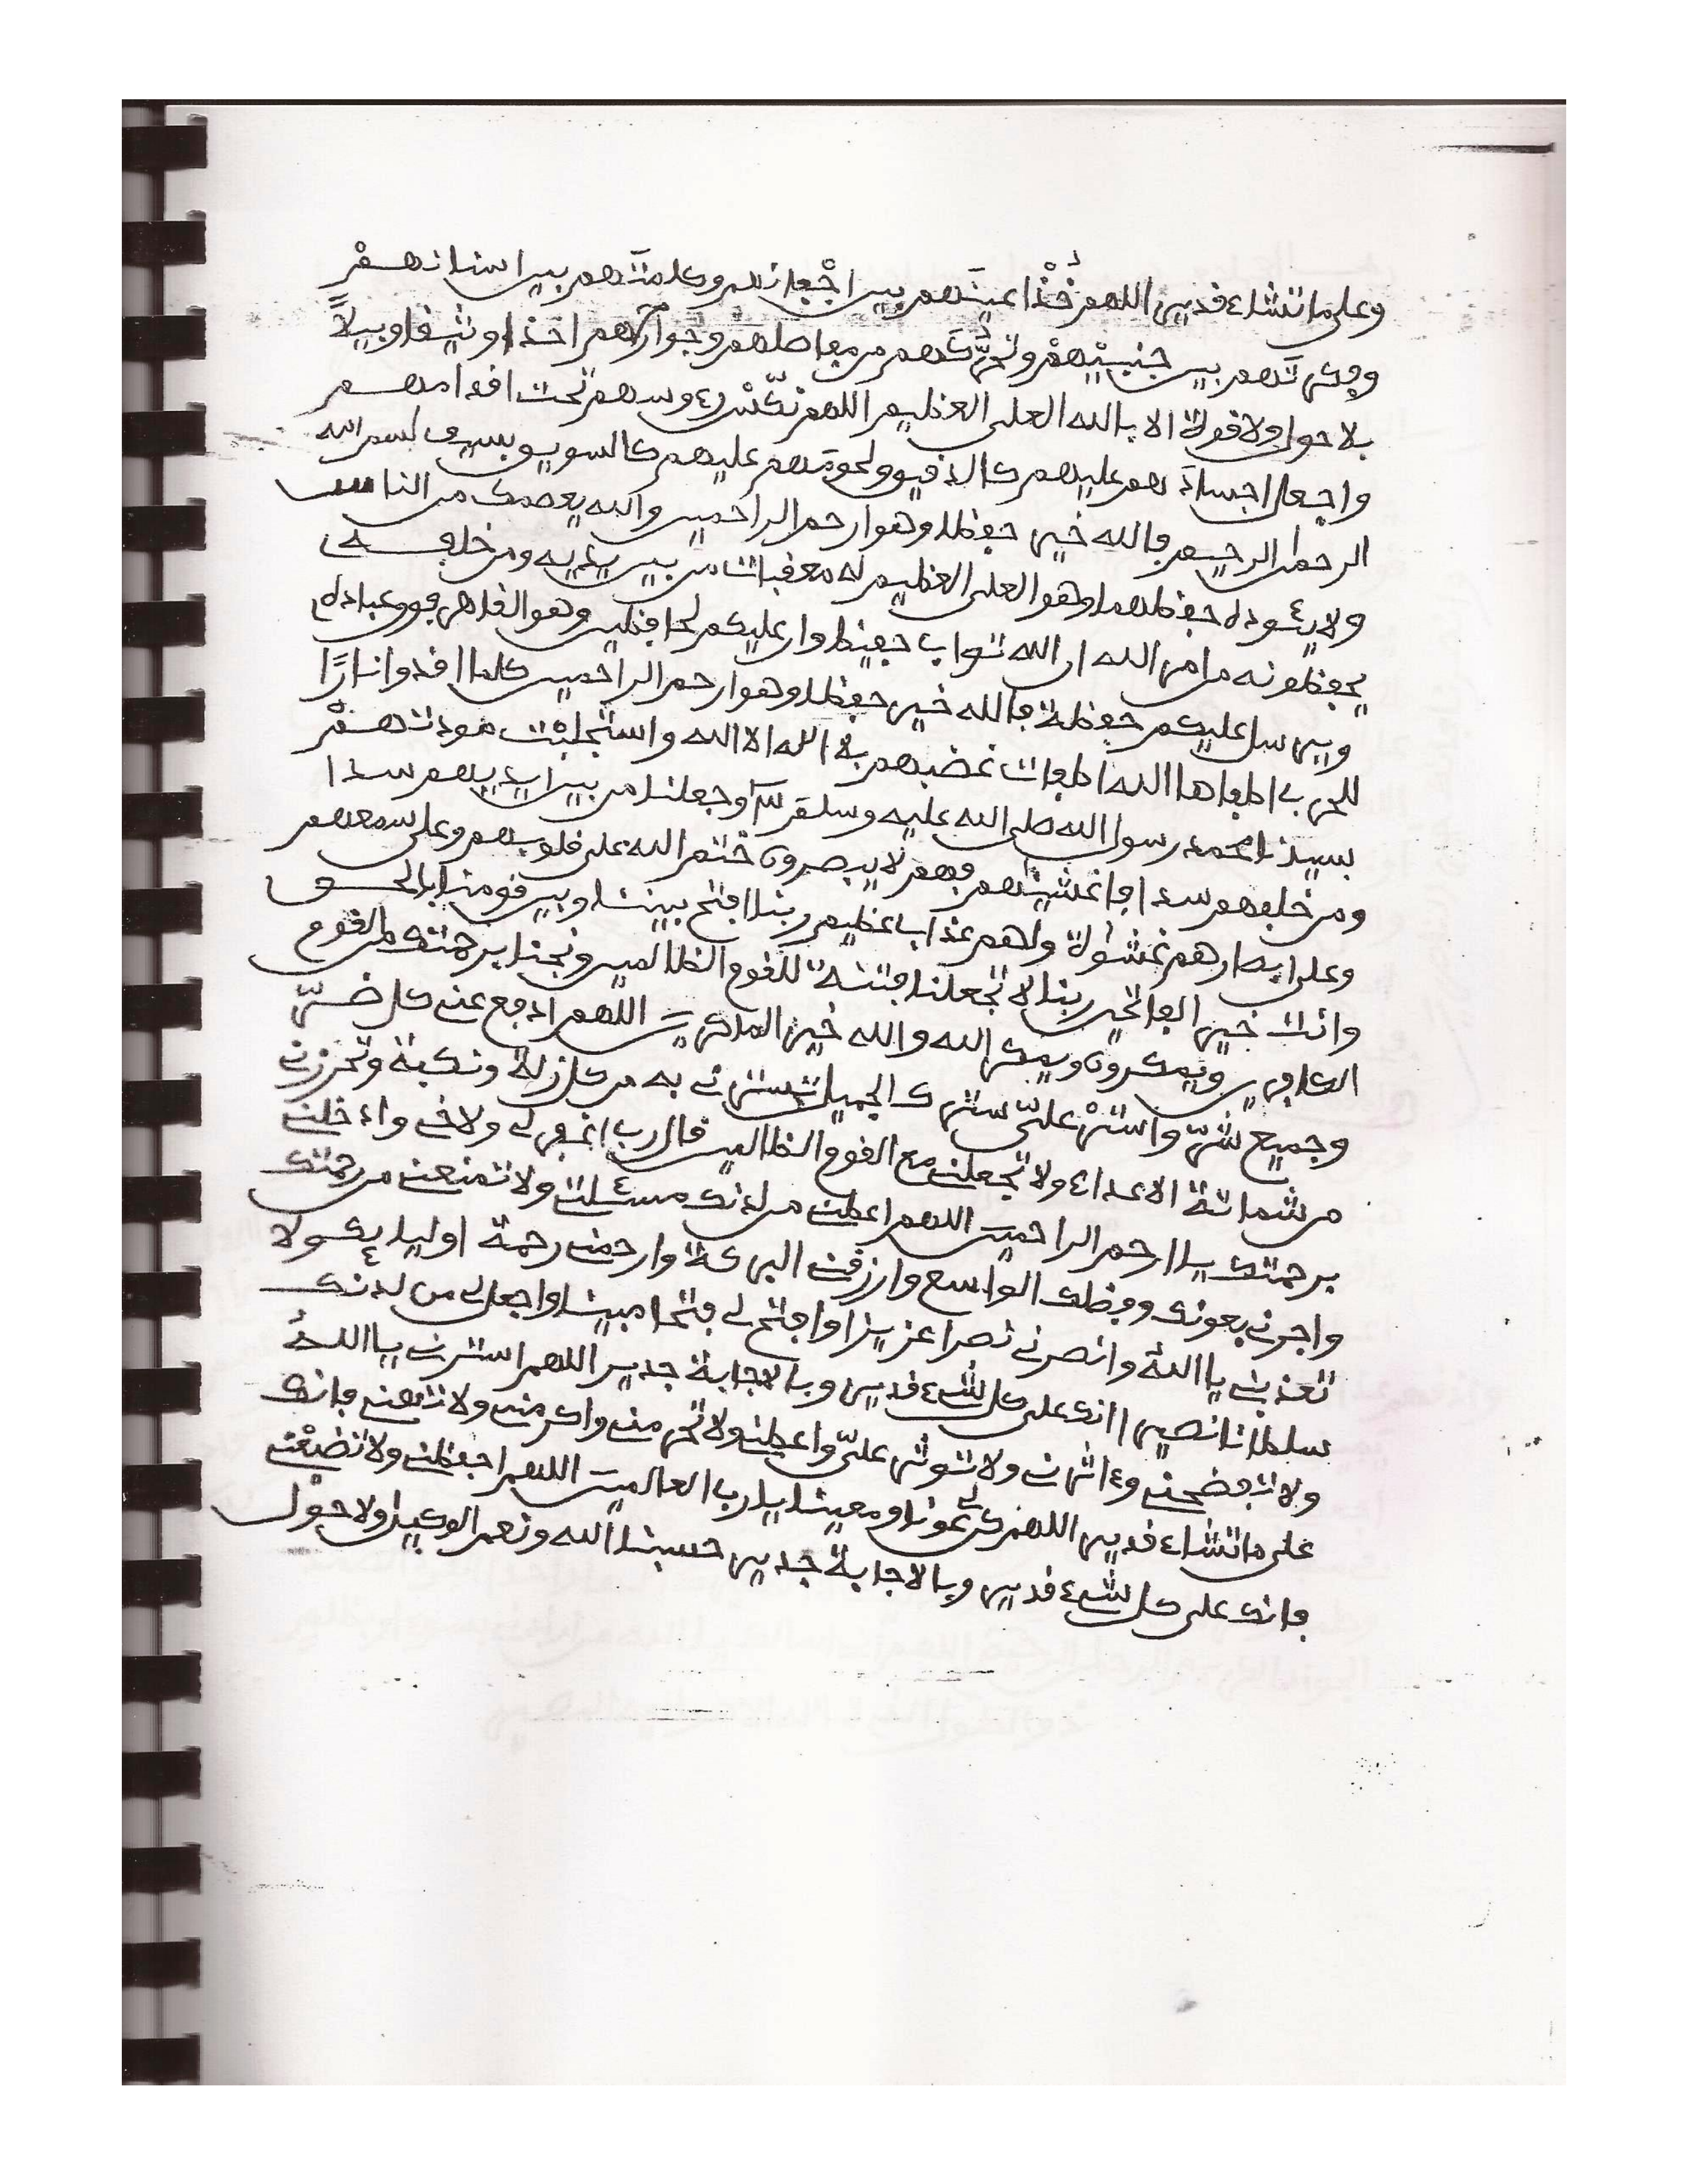 وعلى ما تشاء قدير اللهم خُذْ اعينهم بين اجْفانهم وكلامتهم بين اسنانهمْ
وفكرتهم بين جنبيْهمْ وتحرّكهم من مفاصلهم وجوارحهم اخذا وثيقا وبيلاً
بلا حول ولا قوة الا بالله العلى العظيم اللهم نكّسْ رءوسهم تحت اقدامهم
واجعل اجسادهم عليهم كالدقيق ولحومهم عليهم كالسويق بسم الله
الرحمن الرحيم فالله خير حفظا وهو ارحم الراحمين والله يعصمك من الناس
ولا يئوده حفظهما وهو العلى العظيم له معقبات من بين يديه ومن خلفه
يحفظونه من امر الله ان الله تواب حفيظ وان عليكم لحافظين وهو القاهر فوق عباده
ويرسل عليكم حفظة فالله خير حفظا وهو ارحم الراحمين كلما اوقدوا نارًا
للحرب اطفاها الله اطفات غضبهم بلا اله الا الله واستجلبْت مودتهمْ
بسيدنا محمد رسول الله صلى الله عليه وسلم وجعلنا من بين ايديهم سدا
ومن خلفهم سدا فاغشينهم فهم لا يبصرون ختم الله على قلوبهم وعلى سمعهم
وعلى ابصارهم غشوة ولهم عذاب عظيم ربنا افتح بيننا وبين قومنا بالحق
وانت خير الفاتحين ربنا لا تجعلنا فتنة للقوم الظالمين ونجنا برحمتك من القوم
الكافرين ويمكرون ويمكر الله والله خير الماكرين اللهم ادفع عني كل ضرّ
وجميع شرّ واستْر علىّ سترك الجميل تسترني به من كل زلة ونكبة وتحرزني
من شماتة الاعداء ولا تجعلني مع القوم الظالمين قال رب اغفر لي ولاخي وادخلني
برحمتك يا ارحم الراحمين اللهم اعطني من لدنك مسئلتي ولا تمنعني من رحمتك
واجرني بعونك وفضلك الواسع وارزقني البركة وارحمني رحمة اوليائك ولا
تعذبني يا الله وانصرني نصرا عزيزا وافتح لي فتحا مبينا واجعل لي من لدنك
سلطانا نصيرا انك على كل شيء قدير وبالاجابة جدير اللهم استرني يا الله
ولا تفضحني وءاثرني ولا توثر علىّ واعطني ولا تحرمني واكرمني ولا تهني فانك
على ما تشاء قدير اللهم كن لي عونا ومعينا يا رب العالمين اللهم احفظني ولا تضيعْني
فانك على كل شيء قدير وبالاجابة جدير حسبنا الله ونعم الوكيل ولا حول